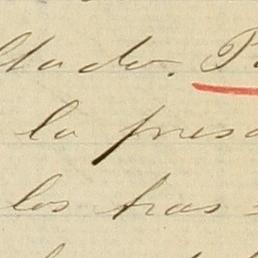 ltado. P
la presa
los tras=